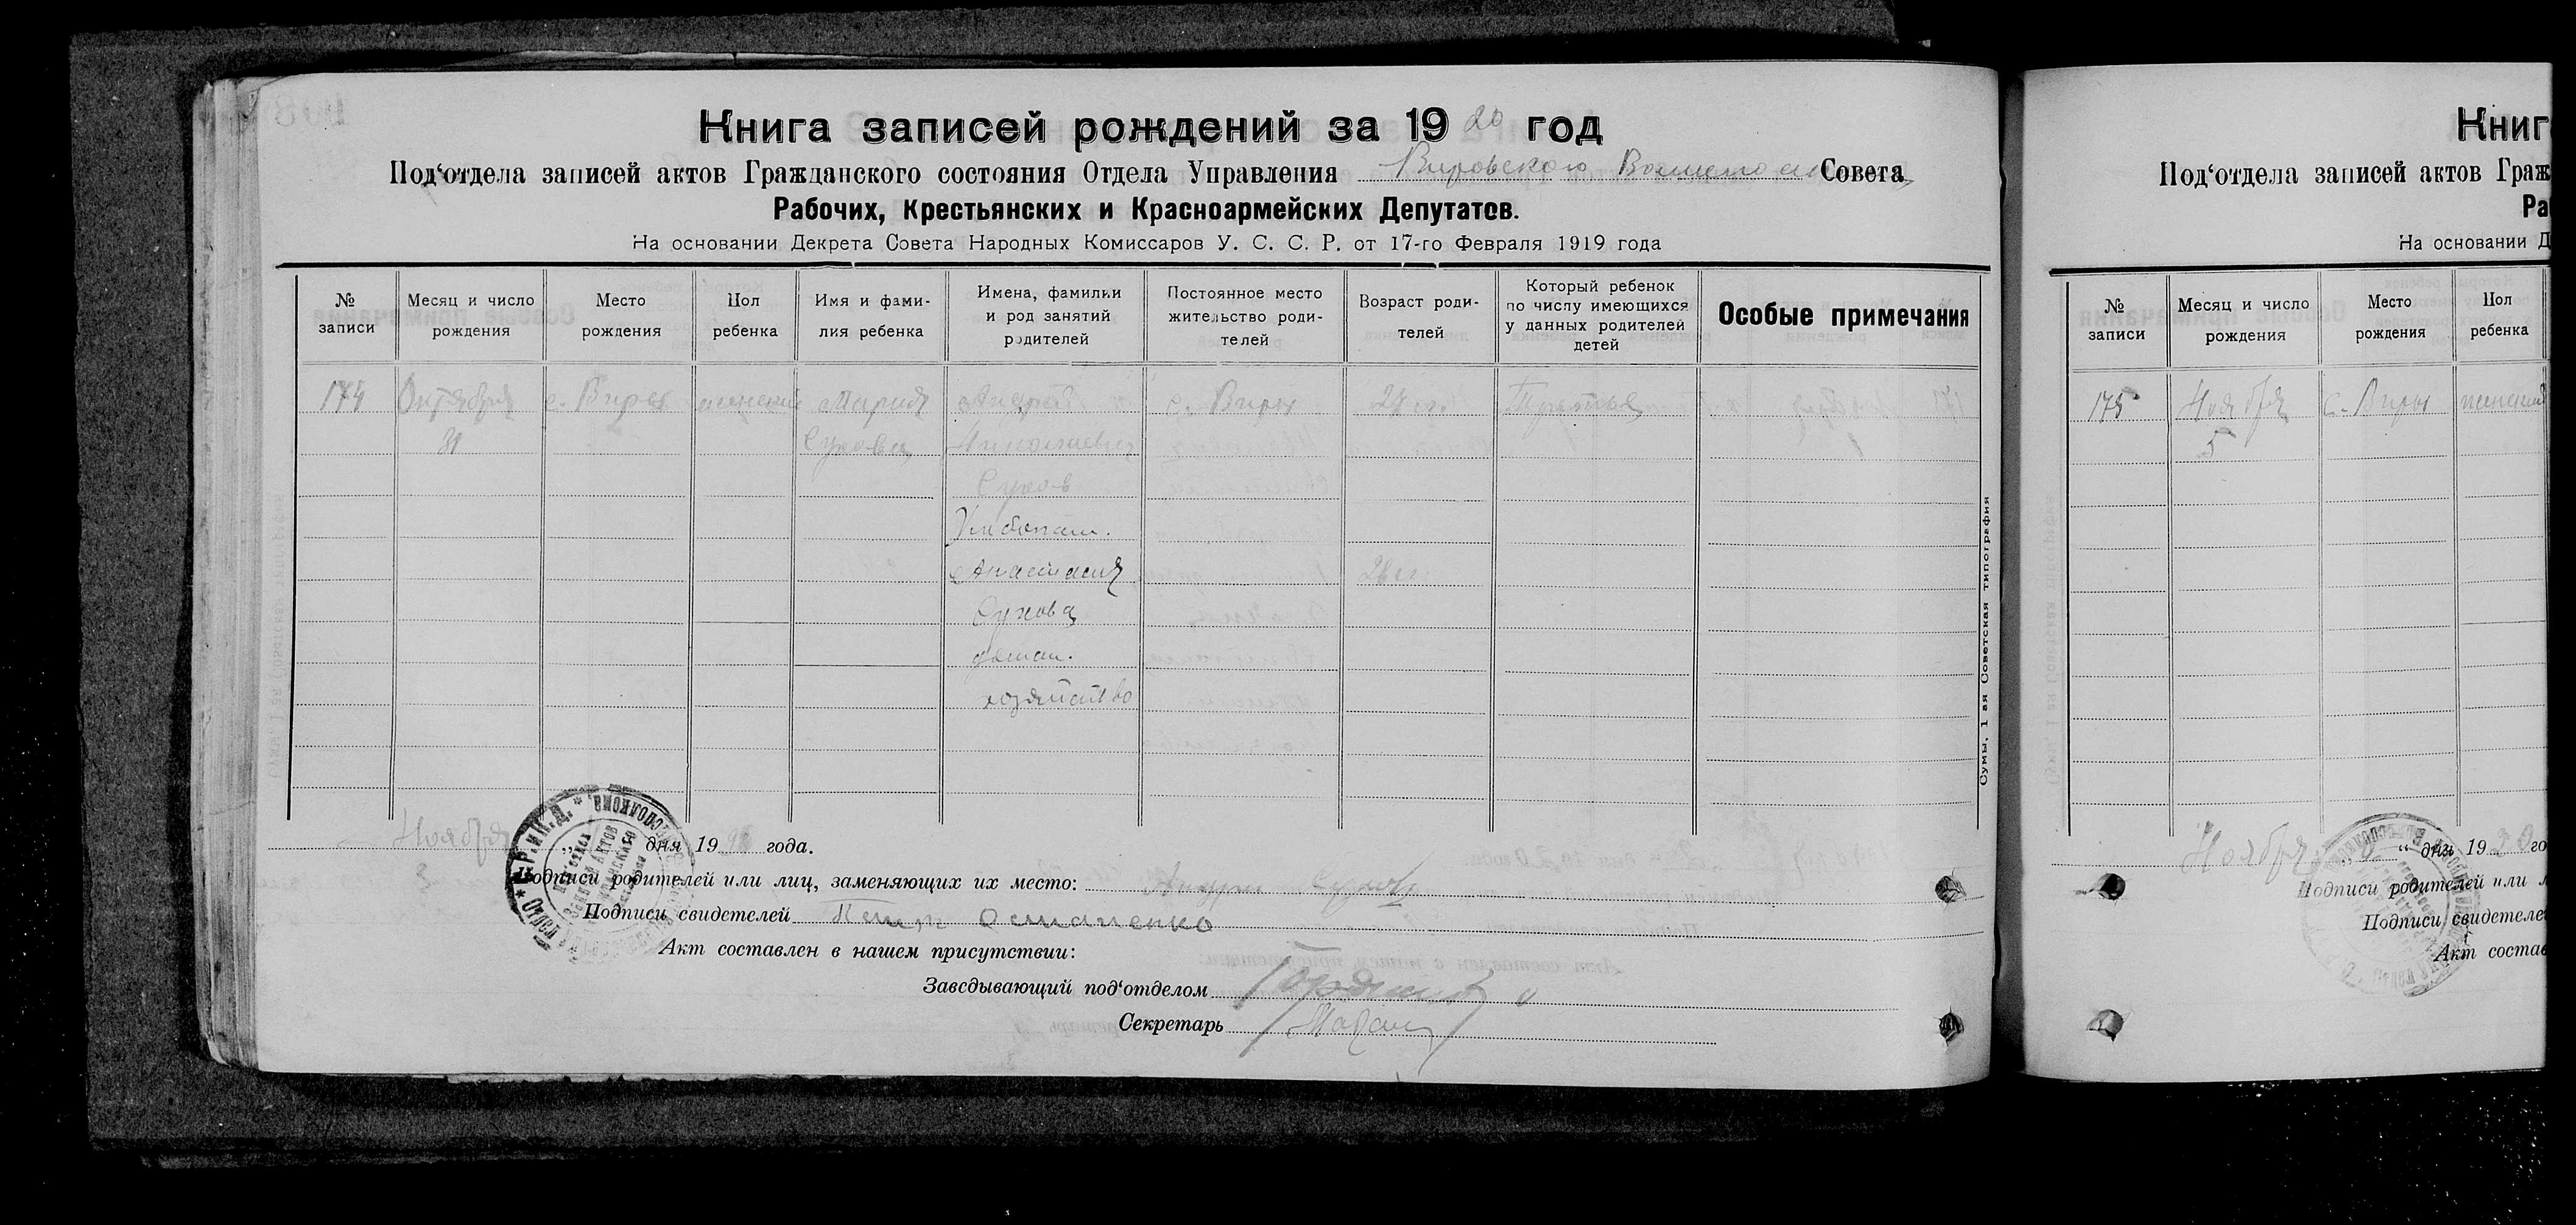 Книга записей рождений за 1920 год
Под‘отдела записей актов Гражданского состояния Отдела Управления Вировского Совета
Рабочих, Крестьянских и Красноармейских Депутатов.
На основании Декрета Совета Народных Комиссаров У. С. С. Р. от 17-го Февраля 1919 года
№ записи
Месяц и число рождения
Место рождения
Пол ребенка
Имя и фами-
лия ребенка
Имена, фамилии
и род занятий
родителей
Постоянное место
жительство роди-
телей
Возраст роди-
телей
Который ребенок
по числу имеющихся
у данных родителей
детей
Особые примечания
174 Октября с. Виры женский Мария Андрей с. Виры 28 Третья
31 Сухова Николаевич
Сухов
Хлебопаш.
Анастасия 26
Сухова
домаш.
хозяйство
Сумы, 1 ая Советская типография
Ноября 3 дня 19 года.
Подписи родителей или лиц, заменяющих их место: Андрей Сухов
Подписи свидетелей Остапенко
Акт составлен в нашем присутствии:
Заведывающий под‘отделом
Секретарь
Книг
Под‘отдела записей актов Граж
Ра
На основании Д
№ записи
Месяц и число рождения
Место рождения
Пол ребенка
175 Ноября с. Виры женский
5
Ноября „ “ дня 1920 го
Подписи родителей или л
Подписи свидетеле
Акт состав